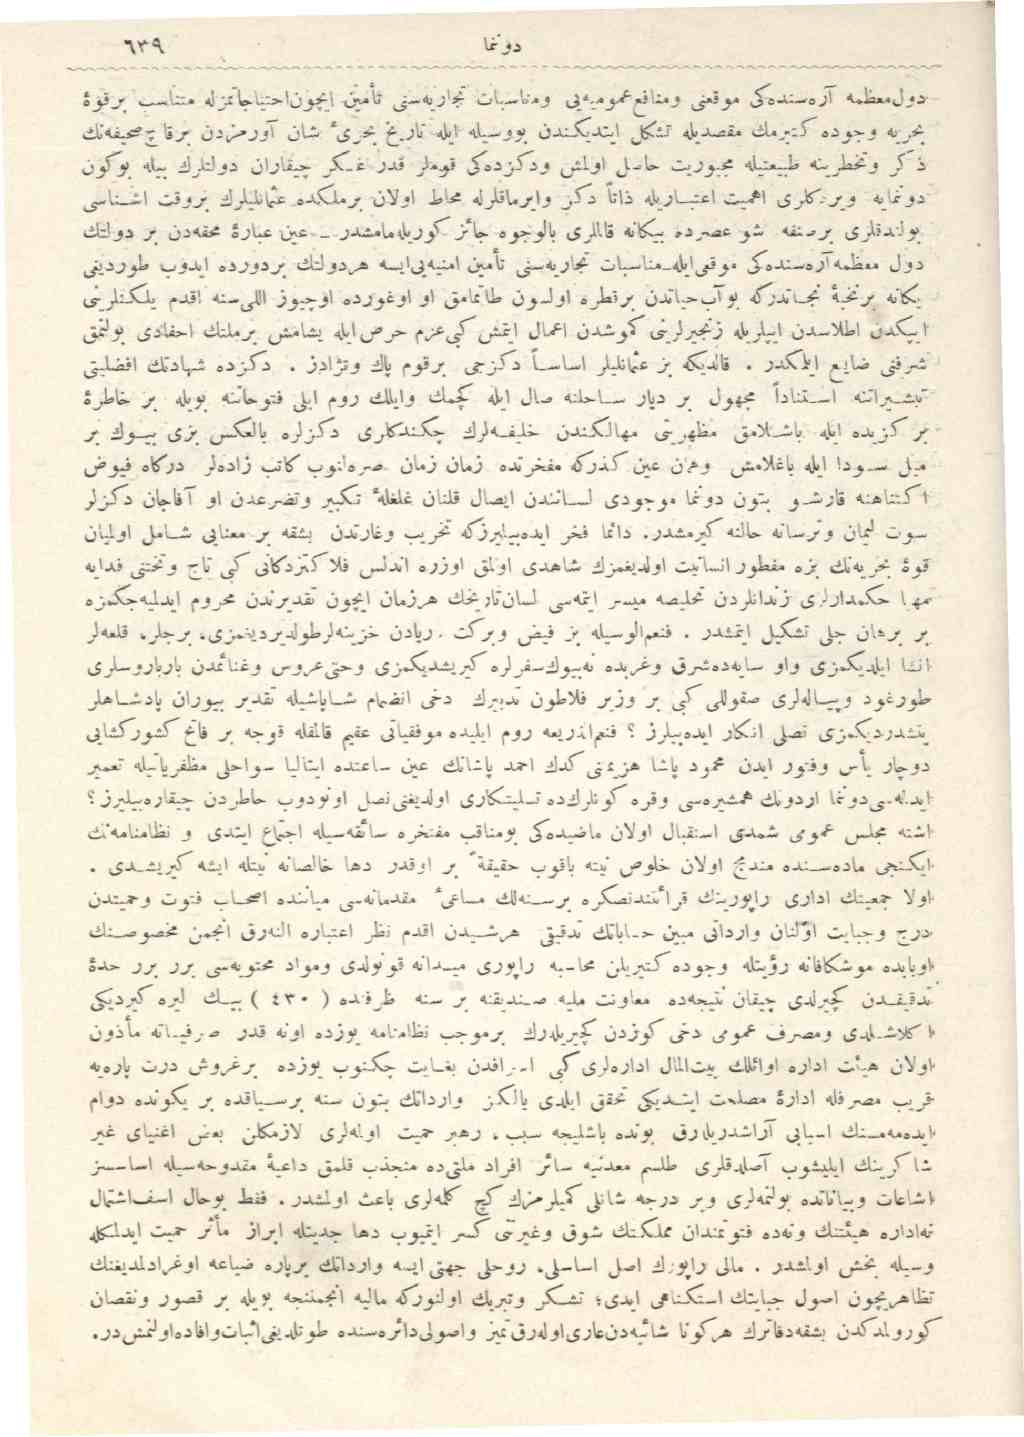 دوننما ٦٣٩
دول معظمه آره‌سنده‌كی موقعنی ومنافع عمومیه‌یی ومناسبات تجاریه‌سنی تأمین ایچون احتیاجاتمزله متناسب برقوۀ
بحریه وجوده كتیرمك مقصدیله تشكل ایتدیكندن بووسیله ایله تاریخ بحریء شان آورمزدن برقاچ صحیفه‌نك
ذكر وتخطرینه طبیعتیله مجبوریت حاصل اولمش ودكزده‌كی قومه‌لر قدر عسكر چیقاران دولتلرك بیله بوكون
دوننمایه ویردكلری اهمیت اعتباریله ذاتاً دكز وایرماقلرله محاط اولان برملكده عثمانلیلرك بروقت اشناسی
بولندقلری برصنفه شو عصرده بیكانه قاللری بالوجوه جائز كوریله‌مامشدر ـ عین عبارۀ محقه‌دن بر دولتك
دول معظمه آره‌سنده‌كی موقعی ایله مناسبات تجاریه‌سنی تأمین امنیه‌یی ایسه هردولتك بردورده ایدوب طوردیغی
یكانه برنخبۀ نجاتدركه بوآب حیاتدن برقطره اولسون طاتمامق او اوغورده اوچیوز اللی سنه اقدم یلكنلرینی
ایپكدن اطلاسدن ایپلریله زنجیرلرینی كموشدن اعمال ایتمش كبی عزم حرص ایله یشامش برملتك احفادی بولنمق
شرفنی ضایع ایلمكدر . قالدیكه بز عثمانلیلر اساساً دكزجی برقوم پاك ونژادز . دكزده شهادتك افضلیتی
تبشیراتنه استناداً مجهول بر دیار ساحلنه صال ایله كچمك وایلك روم ایلی فتوحاتنه بویله بر خاطرۀ
بر كزیده ایله باشلامق مظهریتی مهالكندن خلیفه‌لرك چكندكلری دكزلره بالعكس بزی بیوك بر
میل سودا ایله باغلامش وهمان عین كذركه مفخرتده زمان زمان صره‌لنوب كاتب زاده‌لر دركاه فیوض
اكتناهنه قارشو بتون دوننما موجودی لسانندن ایصال قلنان غلغلهء تكبیر وتضرعدن او آقاجان دكزلر
سوت لیمان وترسانه حالنه كیرمشدر. دائما فخر ایده‌بیلیرزكه تخریب وغارتدن بشقه بر معنایی شامل اولمیان
قوۀ بحریه‌نك بزه مفطور انسانیت اولدیغمزك شاهدی اولمق اوزره اندلس فلاكتزدكانی كبی تاج وتختنی فدایه
حكمدارلری زندانلردن تخلیصه میسر ایتمه‌سی لسان تاریخك هرزمان ایچون تقدیرندن محروم ایدلمیه‌جكمزه
بر برهان جلی تشكیل ایتمشدر . فنعم الوسیله بز فیض وبركت دریادن خزینه‌لر طولدیردیغمزی، برجلر، قلعه‌لر
انشا ایلدیكمزی واو سایه‌ده شرق وغربده نه بیوك سفرلره كیریشدیكمزی وحتی عروس وغنائمدن بارباروسلری
طورغود وپیاله‌لری صقوللی كبی بر وزیر فلاطون تدبیرك دخی انضمام شاپاشیله تقدیر بیوران پادشاهلر
یتشدردیكمزی نصلی انكار ایده‌بیلرز ؟ فنعم الذریعه روم ایلیده موفقیاتی عقیم قالمقله قوجه بر فاتح كشوركشایی
دوچار یأس وفتور ایدن محمود پاشا هزیمتنی كدك احمد پاشانك عین ساعتده ایتالیا سواحلی مظفریاتیله تعمیر
ایدلمه‌سی دوننما اردونك همشیره‌سی وقره كونلرك‌ده تسلیتكاری اولدیغنی نصل اونودوب خاطردن چیقاره‌بیلیرز؟
اشته مجلس عمومی شمدی استقبال اولان ماضیده‌كی بومناقب مفتخره سائقه‌سیله اجتماع ایتدی و نظامنامه‌نك
ایكنجی ماده‌سنده مندمج اولان خلوص نیته باقوب حقیقةً بر اوقدر دها خالصانه نیتله ایشه كیریشدی .
اولا جمعیتك اداری راپورینك قرائتندنصكره برسنه‌لك مساعیء مقدمانه‌سی میاننده اصحاب فتوت وحمیتدن
درج وجبایت اولنان وارداتی مبین حساباتك تدقیقی هرشیدن اقدم نظر اعتباره النه‌رق انجمن مخصوصنك
اوبابده موشكافانه رؤیتله وجوده كتیریلن محاسبه راپوری میدانه قونولدی ومواد محتویه‌سی برر برر حدۀ
تدقیقدن كچیرلدی چیقان نتیجه‌ده معاونت ملیه صندیقنه بر سنه ظرفنده ( ٤٣٠ ) بیك لیره كیردیكی
اكلاشلدی ومصرف عمومی دخی كوزدن كچیریلدرك برموجب نظامنامه یوزده اونه قدر صرفیاته مأذون
اولان هیئت اداره اوائلك بیت‌المال اداره‌لری كبی اسرافدن بغایت چكنوب یوزده برغروش درت پاره‌یه
قریب مصرفله ادارۀ مصلحت ایتدیكی تحقق ایلدی یالكز وارداتك بتون سنه برسیاقده بر یكونده دوام
ایده‌مه‌مسنك اسبابی آراشدریلارق بونده باشلیجه سبب، رهبر حمیت اولمه‌لری لازمكلن بعض اغنیای غیر
شاكرینك ایلیشوب آصلدقلری طلسم معدنیه سائر افراد ملتی‌ده منجذب قلمق داعیۀ مقدوحه‌سیله اساسسز
اشاعات وبیاناتده بولنمه‌لری وبر درجه شانلی كمیلرمزك كچ كلمه‌لری باعث اولمشدر . فقط بوحال اسف اشتمال
نه‌اداره هیئتنك ونه‌ده فتوتمندان مملكتك شوق وغیرتنی كسر ایتمیوب دها جدیتله ابراز مآثر حمیت ایدلمكله
وسیله بخش اولمشدر . مالی راپورك اصل اساسلی، روحلی جهتی ایسه وارداتك برپاره ضیاعه اوغرادلمدیغنك
تظاهریچون اصول جبایتك استكناهی ایدی؛ تشكر وتبریك اولنوركه مالیه انجمننجه بویله بر قصور ونقصان
كورولمدكدن بشقه دفاترك هركونا شائبه‌دن عاری اوله‌رق تمیز واصولی دائره‌سنده طوتلدیغی اثبات وافاده اولنمش در.